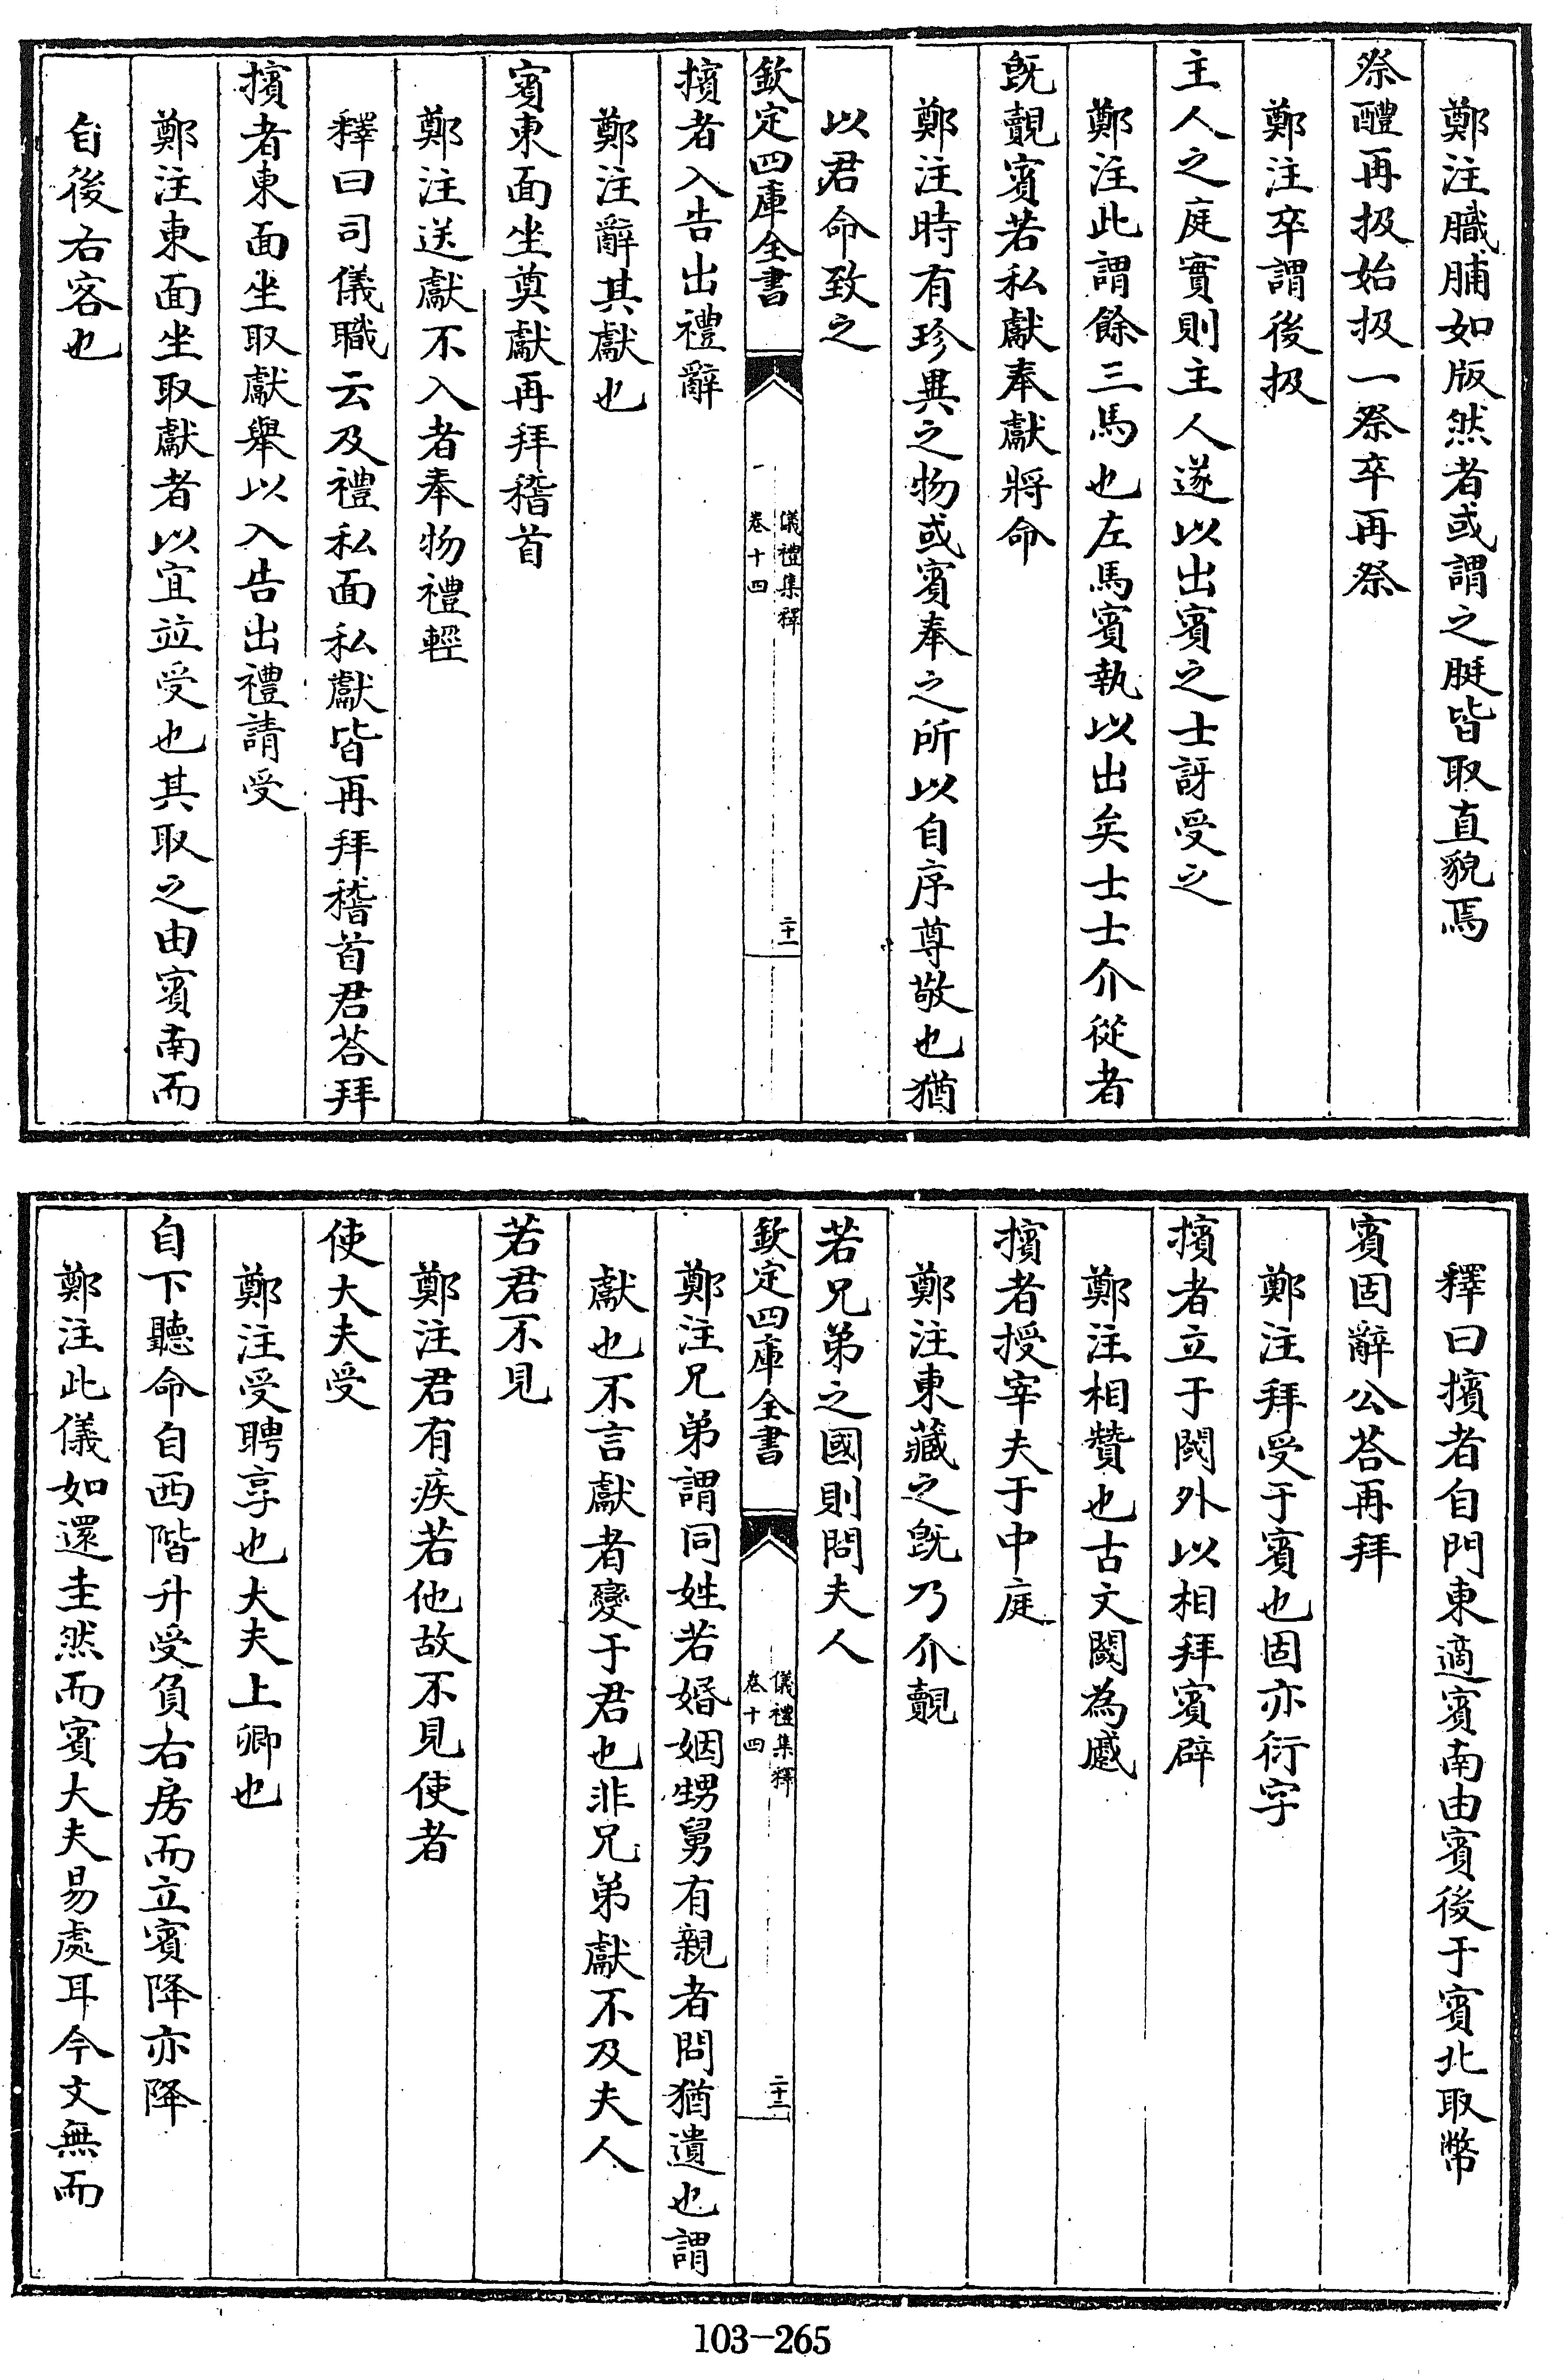 鄭注膱脯如版然者或謂之脡皆取直貌焉
祭醴再扱始扱一祭卒再祭
鄭注卒謂後扱
主人之庭實則主人遂以出賓之士訝受之
鄭注此謂餘三馬也左馬賓執以出矣士士介從者
旣覿賓若私獻奉獻將命
鄭注時有珍異之物或賓奉之所以自序尊敬也猶
以君命致之
欽定四庫全書
儀禮集釋
卷十四
二十一
擯者入告出禮辭
鄭注辭其獻也
賓東面坐奠獻再拜稽首
鄭注送獻不入者奉物禮輕
釋曰司儀職云及禮私面私獻皆再拜稽首君荅拜
擯者東面坐取獻舉以入告出禮請受
鄭注東面坐取獻者以宜竝受也其取之由賓南而
自後右客也
釋曰擯者自門東適賓南由賓後于賓北取幣
賓固辭公荅再拜
鄭注拜受于賓也固亦衍字
擯者立于閾外以相拜賓辟
鄭注相贊也古文閾為蹙
擯者授宰夫于中庭
鄭注東藏之旣乃介覿
若兄弟之國則問夫人
欽定四庫全書
儀禮集釋
卷十四
二十二
鄭注兄弟謂同姓若婚姻甥舅有親者問猶遺也謂
獻也不言獻者變于君也非兄弟獻不及夫人
若君不見
鄭注君有疾若他故不見使者
使大夫受
鄭注受聘享也大夫上卿也
自下聽命自西階升受負右房而立賓降亦降
鄭注此儀如還圭然而賓大夫易處耳今文無而
103-265